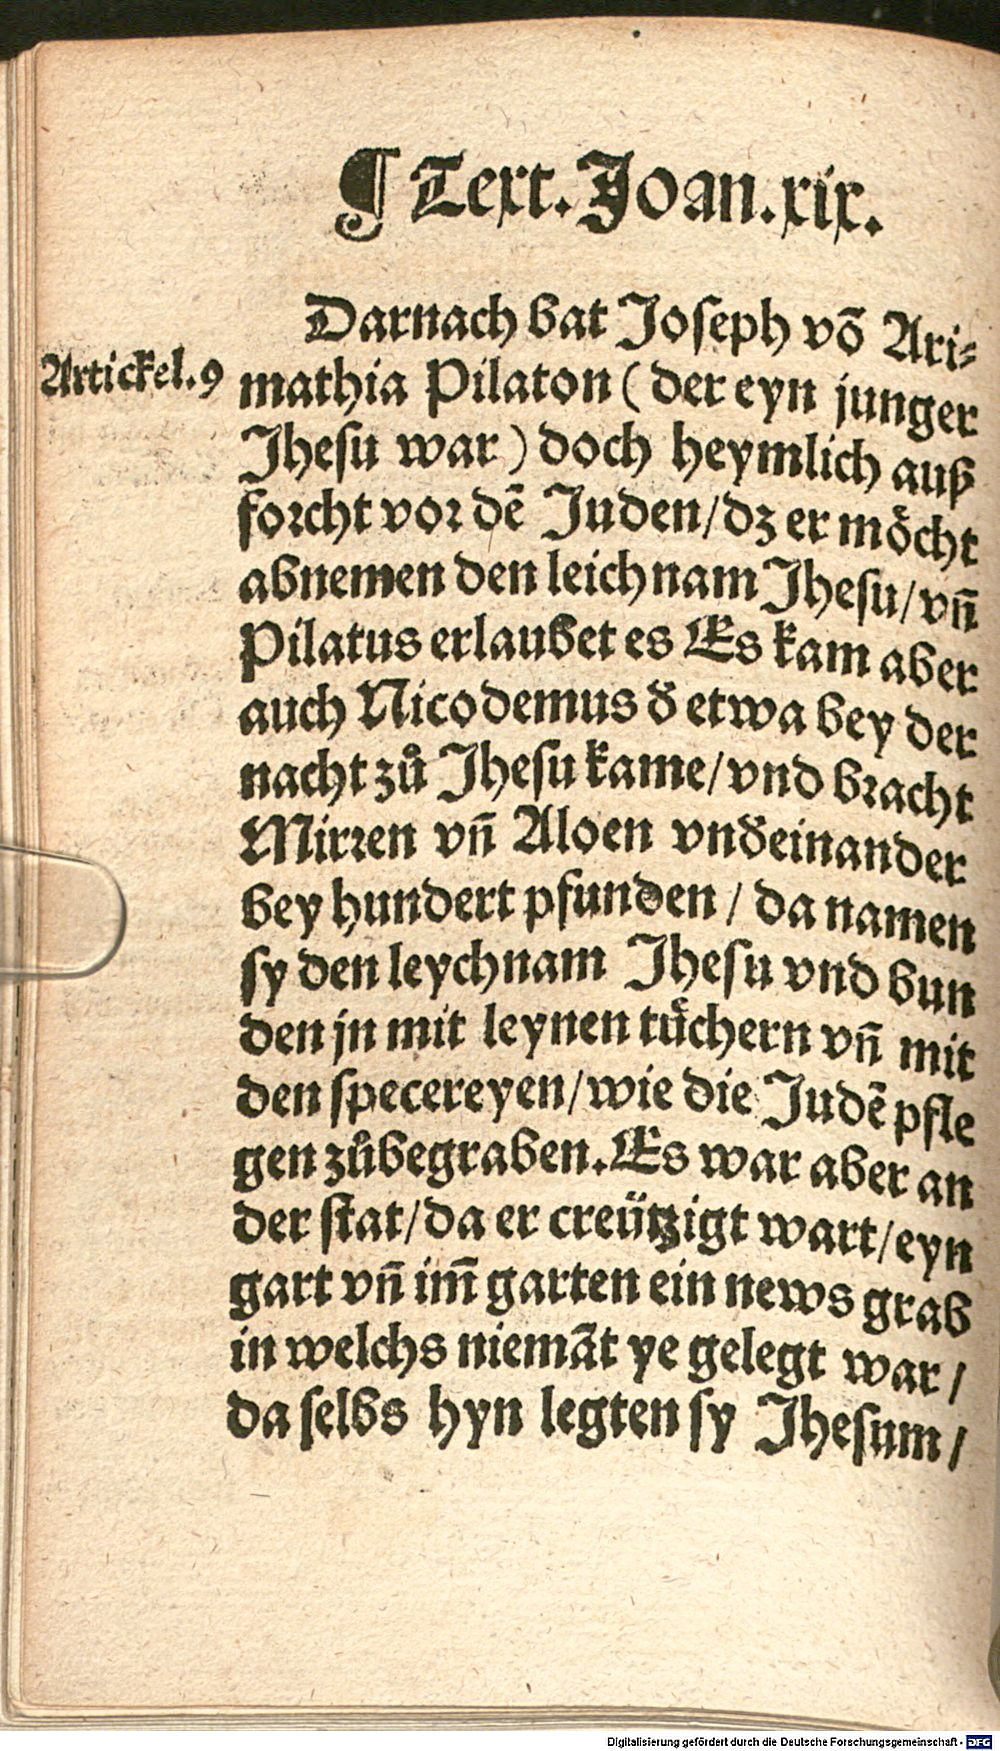 ¶ Text. Joan. xix.
Darnach bat Joseph võ Ari⸗
Artickel. 9
mathia Pilaton ( der eyn junger
Jhesu war ) doch heymlich auß
forcht vor dẽ Juden / dz er moͤcht
abnemen den leichnam Jhesu / vñ
Pilatus erlaubet es Es kam aber
auch Nicodemus đ etwa bey der
nacht zů Jhesu kame / vnd bracht
Mirren vñ Aloen vnđeinander
bey hundert pfunden / da namen
sy den leychnam Jhesu vnd bun
den jn mit leynen tuͤchern vñ mit
den specereyen / wie die Judẽ pfle
gen zůbegraben. Es war aber an
der stat / da er creützigt wart / eyn
gart vñ im̃ garten ein news grab
in welchs niemãt ye gelegt war /
da selbs hyn legten sy Jhesum /
Digitalisierung gefördert durch die Deutsche Forschungsgemeinschaft - DFG